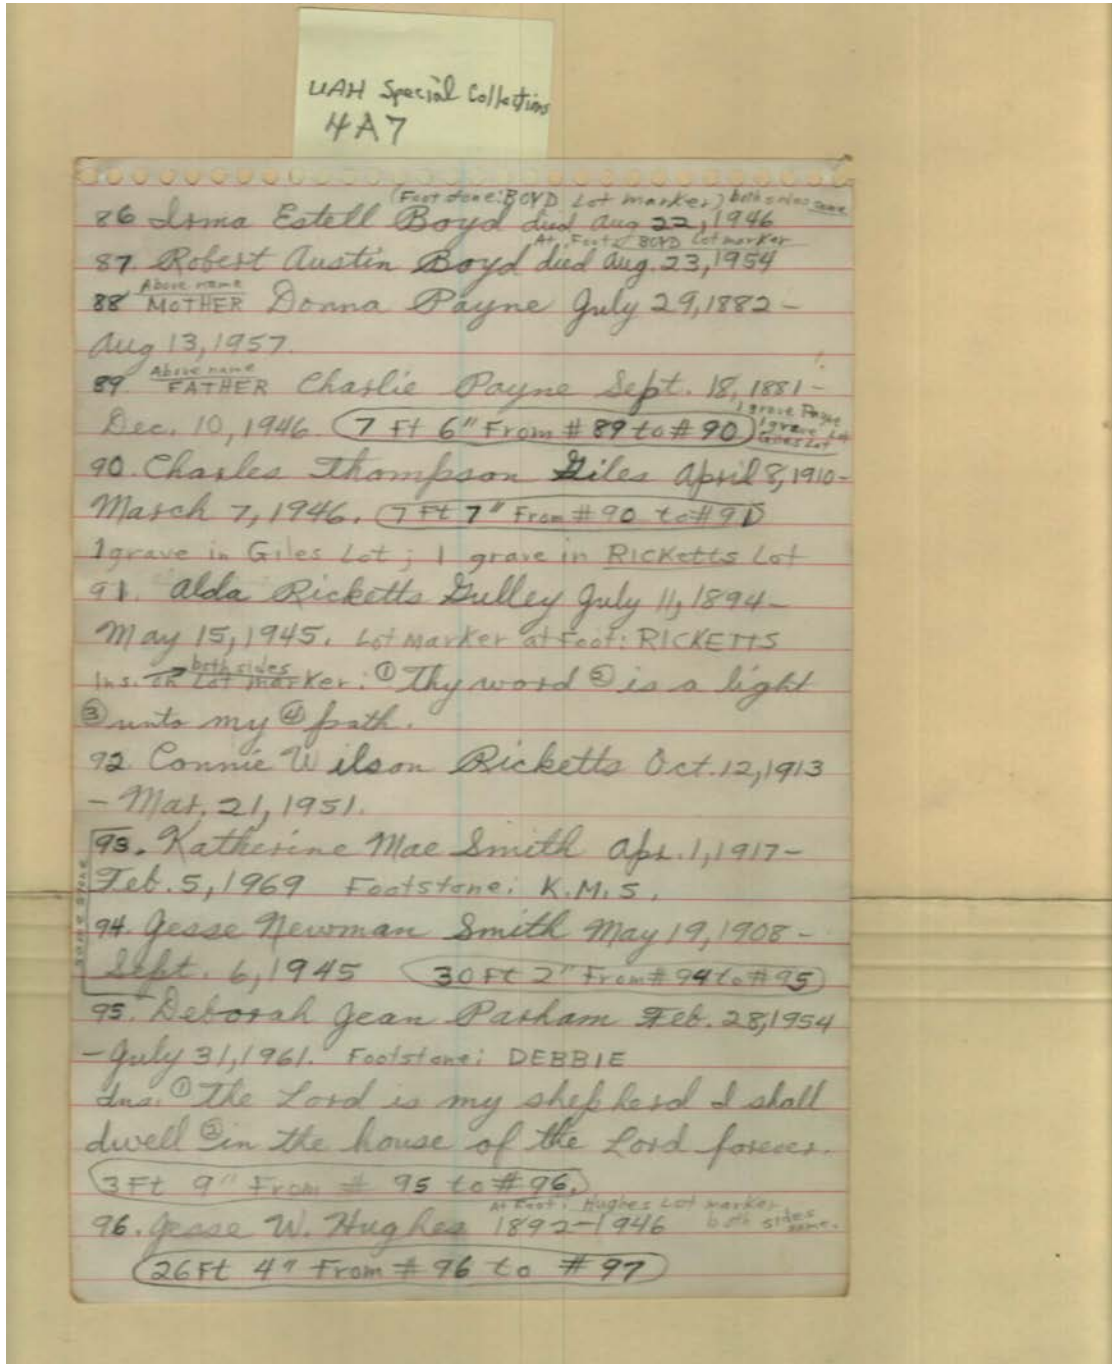 UAH Special Collections
4A7
(Footstone: BOYD Lot marker) both sides same
86 Irma Estell Boyd died Aug 22, 1946
At Foot BOYD Lot marker
87. Robert Austin Boyd died Aug. 23, 1954
Above name
88 MOTHER Donna Payne July 29, 1882 -
Aug 13, 1957.
Above name
89 FATHER Charlie Payne Sept. 18, 1881 -
Dec. 10, 1946. 7 Ft 6" From # 89 to # 90
1 grave Payne
1 grave Lot
Giles Lot
90. Charles Thompson Giles April 8, 1910 -
March 7, 1946. 7 Ft 7" From # 90 to # 91
1 grave in Giles Lot; 1 grave in RICKETTS Lot
91. Alda Ricketts Gulley July 11, 1894 -
May 15, 1945. Lot marker at Foot: RICKETTS
both sides
Ins. on Lot marker: ① Thy word ② is a light
③ unto my ④ path.
92. Connie Wilson Ricketts Oct. 12, 1913
- Mar. 21, 1951.
same stone
93. Katherine Mae Smith Apr. 1, 1917 -
Feb. 5, 1969 Footstone: K.M.S.
94. Jesse Newman Smith May 19, 1908 -
Sept. 6, 1945 30 Ft 2" From # 94 to # 95
95. Deborah Jean Parham Feb. 28, 1954
- July 31, 1961. Footstone: DEBBIE
Ins. ① The Lord is my shepherd I shall
dwell ② in the house of the Lord forever.
3 Ft 9" From # 95 to # 96.
At Foot: Hughes Lot marker both sides same.
96. Jesse W. Hughes 1892-1946
26 Ft 4" From # 96 to # 97